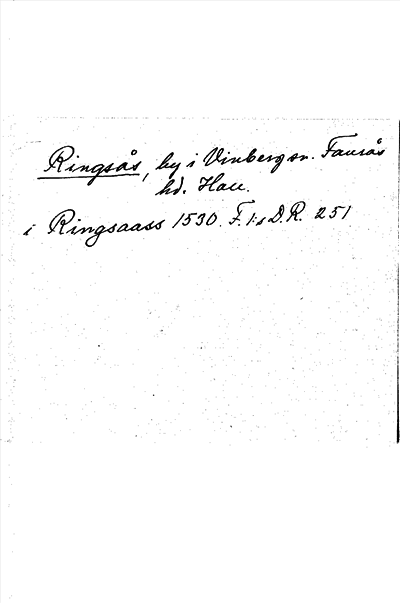 Ringsås, by i Vinberg sn. Faurås
hd. Hall.
i Ringsaass 1530. F. I:s D.R. 251